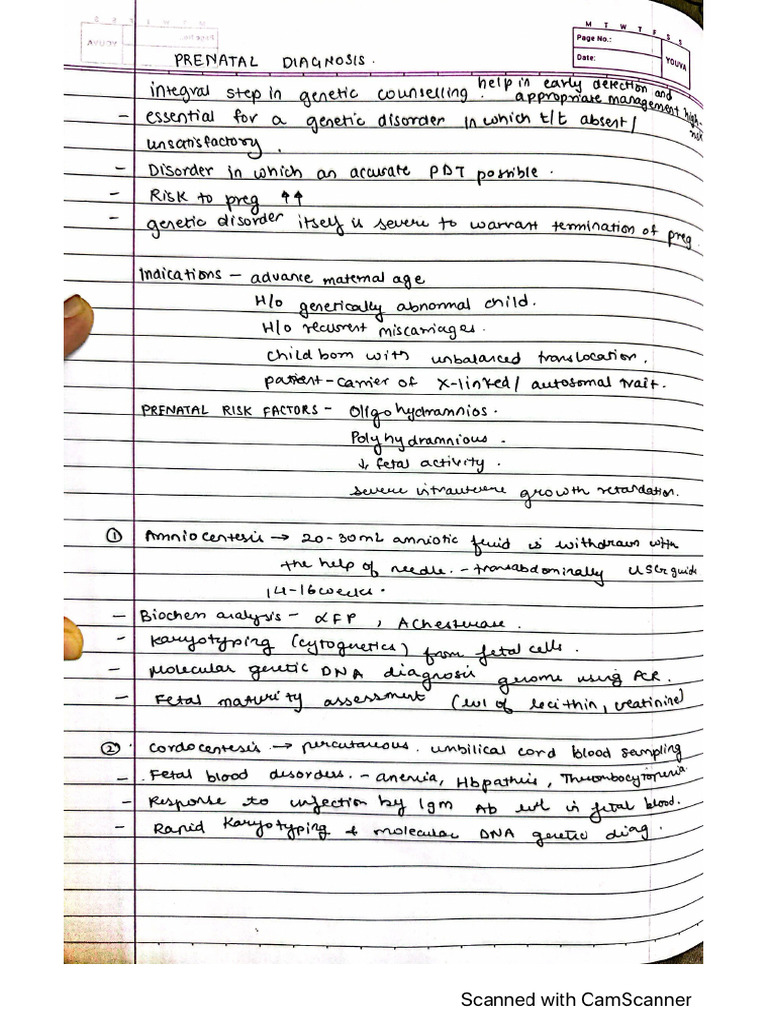 M T W T F S S
Page No.:
Date:
YOUVA
PRENATAL DIAGNOSIS.
integral step in genetic counselling. help in early detection and appropriate management high-risk
- essential for a genetic disorder in which t/t absent/
unsatisfactory.
- Disorder in which an accurate PDT possible.
- Risk to preg ↑↑
- genetic disorder itself is severe to warrant termination of preg.
Indications - advance maternal age
H/o genetically abnormal child.
H/o recurrent miscarriages.
child born with unbalanced translocation.
patient-carrier of X-linked/ autosomal trait.
PRENATAL RISK FACTORS - Oligohydramnios.
Polyhydramnious.
↓ fetal activity.
severe intrauterine growth retardation.
① Amniocentesis → 20-30mL amniotic fluid is withdrawn with
the help of needle. - transabdominally USG guide
14-16 weeks.
- Biochem analysis - αFP, AChesterase.
- Karyotyping (cytogenetics) from fetal cells.
- Molecular genetic DNA diagnosis genome using PCR.
- Fetal maturity assessment (lvl of lecithin, creatinine)
② Cordocentesis → percutaneous umbilical cord blood sampling
- Fetal blood disorders. - anemia, Hbpathies, Thrombocytopenia.
- Response to infection by IgM Ab lvl in fetal blood.
- Rapid Karyotyping + molecular DNA genetic diag.
Scanned with CamScanner